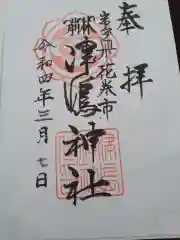 奉拝
岩手県花巻市
津嶋神社
令和四年三月七日